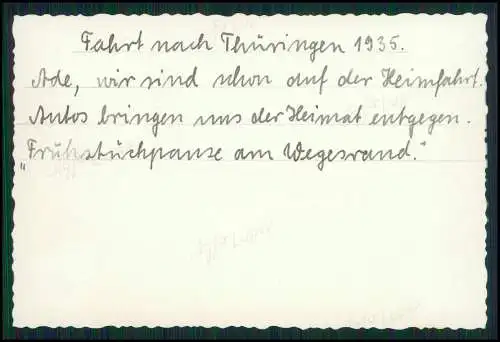 Fahrt nach Thüringen 1935.
Ade, wir sind schon auf der Heimfahrt.
Autos bringen uns der Heimat entgegen.
"Frühstückpause am Wegesrand."